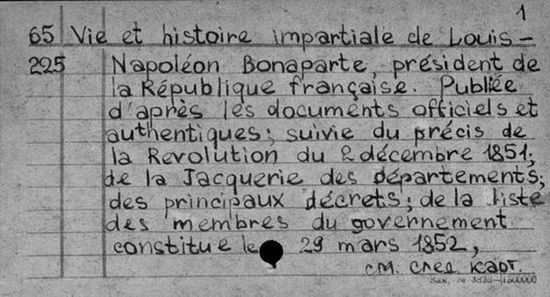 1
65 Vie et histoire impartiale de Louis-
225 Napoléon Bonaparte, président de
la République française. Publiée
d'après les documents officiels et
authentiques; suivie du précis de
la Revolution du 2 décembre 1851;
de la Jacquerie des départements;
des principaux décrets; de la liste
des membres du governement
constitue le 29 mars 1852,
см. след карт.